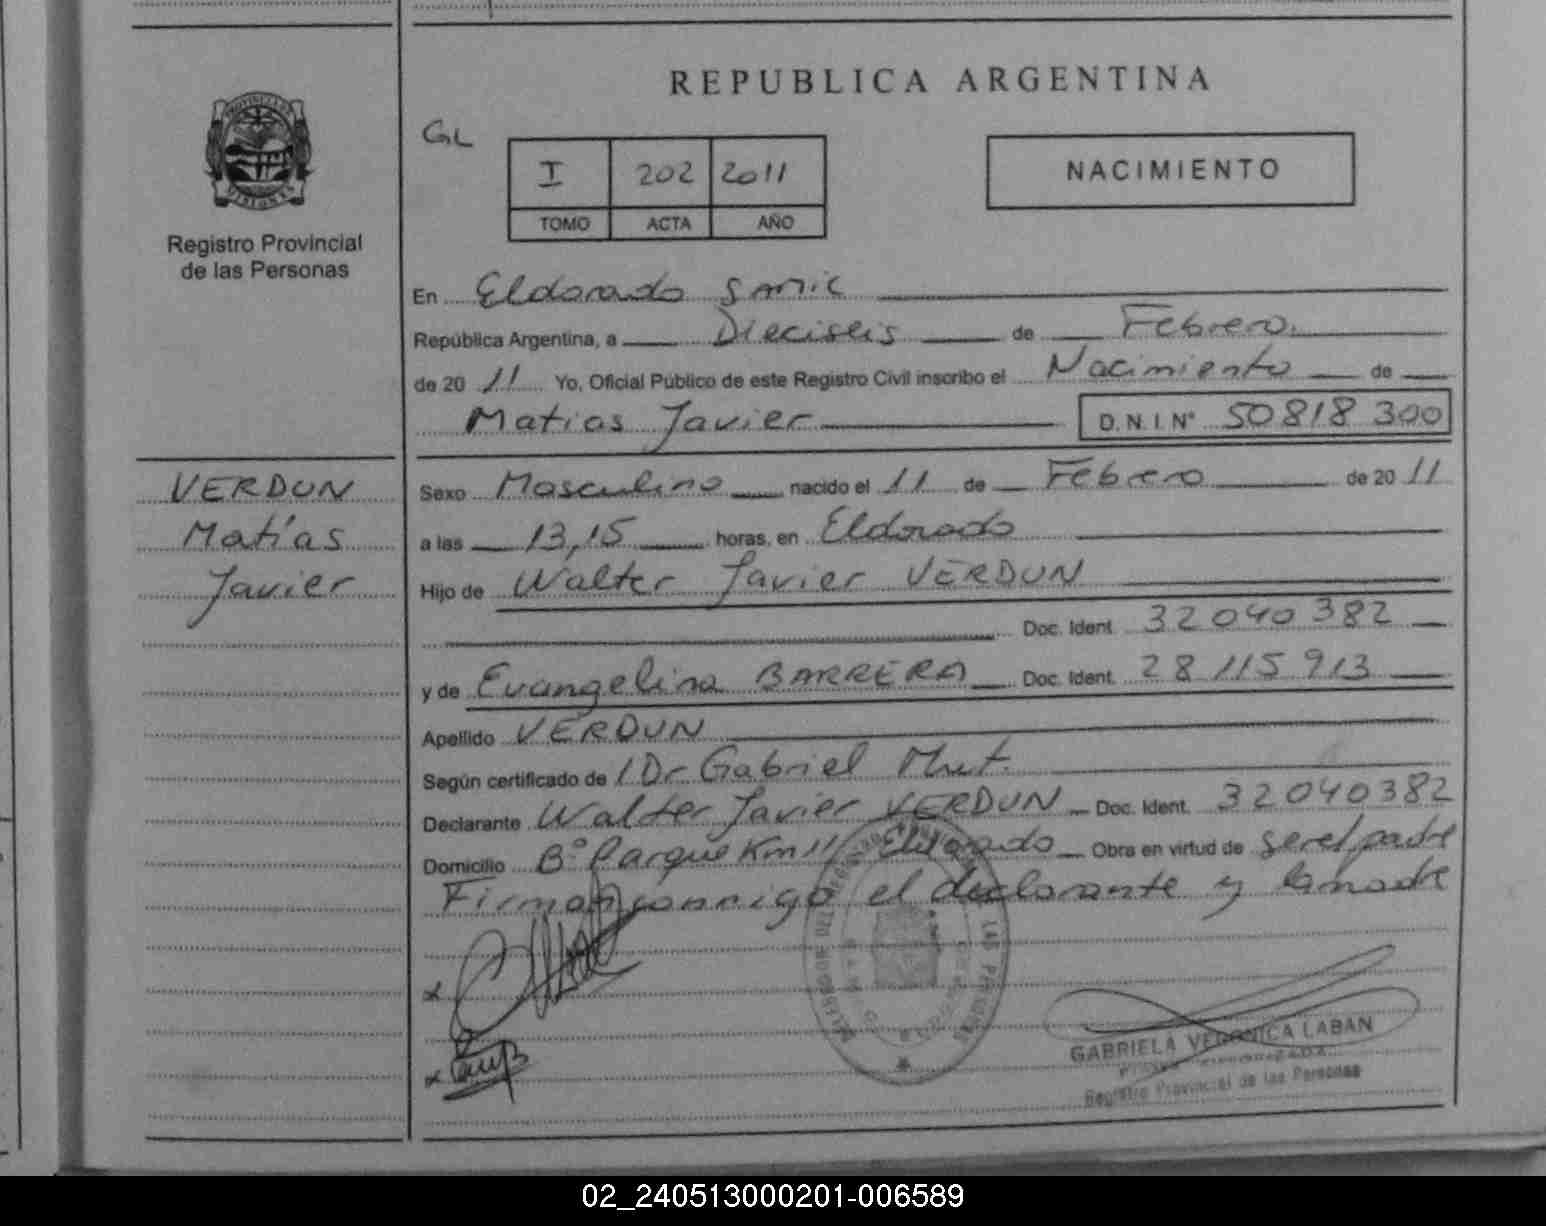 REPUBLICA ARGENTINA
GL
I 202 2011
TOMO ACTA AÑO
NACIMIENTO
Registro Provincial
de las Personas
En Eldorado
República Argentina, a Dieciseis de Febrero.
de 20 11 Yo, Oficial Público de este Registro Civil inscribo el Nacimiento de
Matias Javier D.N.I. N° 50818 300
VERDUN
Matías
Javier
Sexo Masculino nacido el 11 de Febrero de 20 11
a las 13,15 horas, en Eldorado
Hijo de Walter Javier VERDUN
Doc. Ident. 32040382
y de Evangelina BARRERA Doc. Ident. 28 115 913
Apellido VERDUN
Según certificado de Dr Gabriel
Declarante Walter Javier VERDUN Doc. Ident. 32040382
Domicilio B° Parque Km 11 Eldorado Obra en virtud de ser el padre
Firman conmigo el declarante y la madre
GABRIELA VERONICA LABAN
Registro Provincial de las Personas
02_240513000201-006589